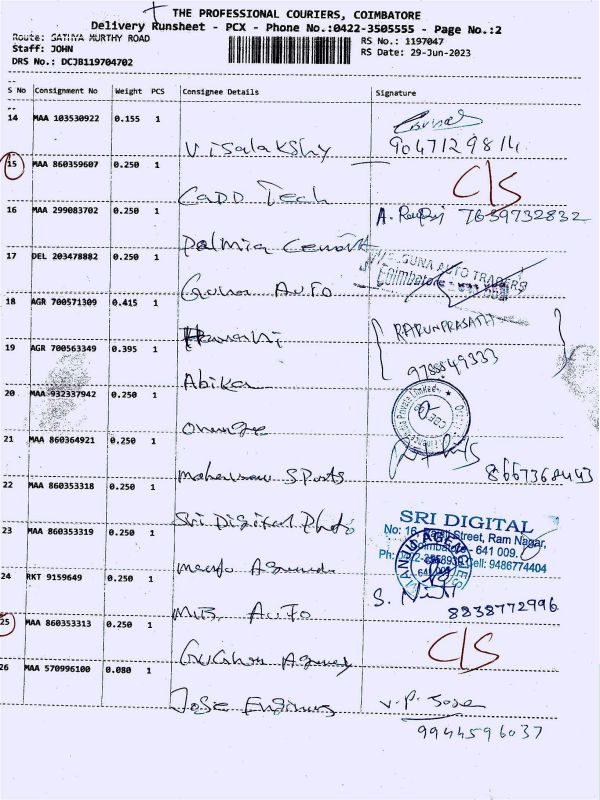 THE PROFESSIONAL COURIERS, COIMBATORE
Delivery Runsheet - PCX - Phone No.:0422-3505555 - Page No.:2
Route: SATHYA MURTHY ROAD
RS No.: 1197047
Staff: JOHN
RS Date: 29-Jun-2023
DRS No.: DCJB119704702
S No Consignment No Weight PCS Consignee Details Signature
14 MAA 103530922 0.155 1
Visalakshy 9047129814
15 MAA 860359607 0.250 1
CADD Tech C/S
16 MAA 299083702 0.250 1
A. 7639732832
Dalmia Cement
17 DEL 203478882 0.250 1
GUNA AUTO TRADERS
Coimbatore
Guna Auto
18 AGR 700571309 0.415 1
19 AGR 700563349 0.395 1
9788849333
20 MAA 932337942 0.250 1
Orange
21 MAA 860364921 0.250 1
8667368443
Sports
22 MAA 860353318 0.250 1
Sri Digital Photo
SRI DIGITAL
Street, Ram Nagar,
23 MAA 860353319 0.250 1
Coimbatore - 641 009.
Cell: 9486774404
24 RKT 9159649 0.250 1
Auto
S.
8838772996
25 MAA 860353313 0.250 1
C/S
26 MAA 570996100 0.080 1
Jose V.P. Jose
9944596037